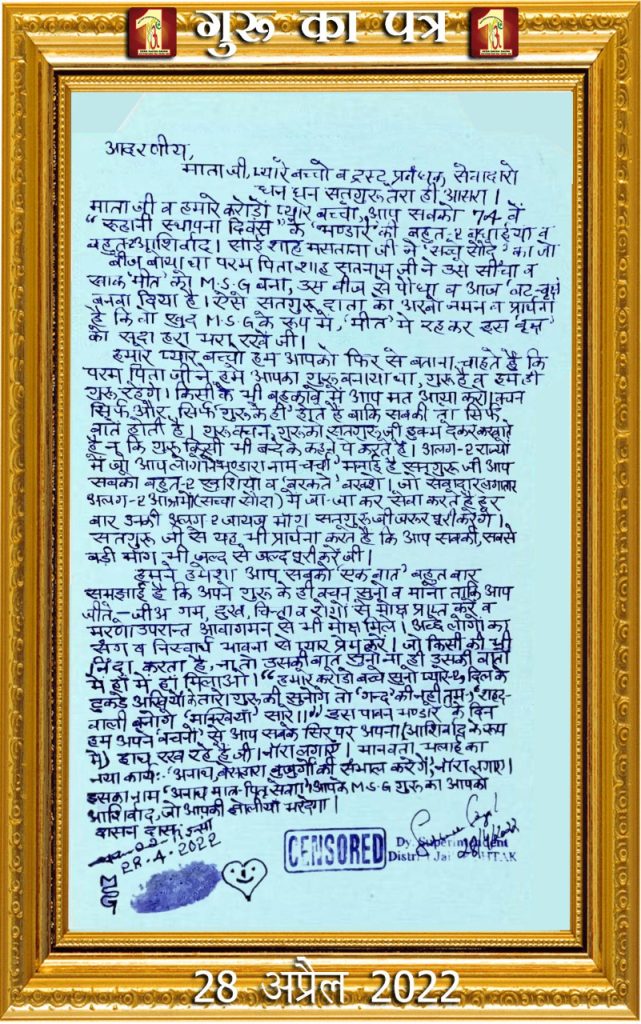 गुरु का पत्र
आदरणीय,
माता जी, प्यारे बच्चो व ट्रस्ट प्रबंधक, सेवादारो
धन धन सतगुरु तेरा ही आसरा।
माता जी व हमारे करोड़ों प्यारे बच्चो, आप सबको 74 वें
"रूहानी स्थापना दिवस" के 'भण्डारे' की बहुत-2 बधाईयां व
बहुत-2 आशिर्वाद। साईं शाह मसताना जी ने 'सच्चे सौदे' का जो
बीज बोया था परम पिता शाह सतनाम जी ने उसे सींचा व
खाक 'मीत' को M.S.G बना, उस बीज से पौधा व आज 'वट-वृक्ष'
बनवा दिया है। ऐसे सतगुरु दाता को अरबों नमन व प्रार्थना
है कि वो खुद M.S.G के रूप में, 'मीत' में रहकर इस 'वृक्ष'
को सदा हरा भरा रखें जी।
हमारे प्यारे बच्चो हम आपको फिर से बताना चाहते हैं कि
परम पिता जी ने हमें आपका गुरु बनाया था, गुरु हैं व हम ही
गुरु रहेंगे। किसी के भी बहकावे में आप मत आया करो। वचन
सिर्फ और सिर्फ गुरु के ही होते हैं बाकि सबकी तो सिर्फ
बातें होती हैं। गुरु वचन, गुरु का सतगुरु जी हुक्म देकर करवाते
हैं न कि गुरु किसी भी बन्दे के कहने पे करते हैं। अलग-2 राज्यों
में जो आप लोगों ने भण्डारा नाम चर्चा मनाई है सतगुरु जी आप
सबको बहुत-2 खुशियां व 'बरकतें' बख्शे। जो सेवादार लगातार
अलग-2 आश्रमों (सच्चा सौदा) में जा-जा कर सेवा करते हैं हर
बार उनकी अलग-2 जायज मांग सतगुरु जी जरूर पूरी करेंगे।
सतगुरु जी से यह भी प्रार्थना करते हैं कि आप सबकी, सबसे
बड़ी माँग भी जल्द से जल्द पूरी करें जी।
हमने हमेशा आप सबको 'एक बात' बहुत बार
समझाई है कि अपने गुरु के ही वचन सुनो व मानो ताकि आप
जीते-जीअ गम, दुख, चिन्ता व रोगों से मोक्ष प्राप्त करें व
मरणोउपरान्त आवागमन से भी मोक्ष मिले। अच्छे लोगों का
संग व निस्वार्थ भावना से प्यार प्रेम करें। जो किसी की भी
निंदा करता है, ना तो उसकी बात सुनो ना ही उसकी बातों
में हाँ में हाँ मिलाओ। "हमारे करोड़ों बच्चे सुनो प्यारे, दिल के
टुकड़े अखियों के तारे। गुरु की सुनोगे तो 'गन्द' की नहीं तुम, 'शहद-
वाली बनोगे 'मखियाँ' सारे।।" इस पावन भण्डारे के दिन
हम अपने वचनों से आप सबके सिर पर अपना (आशिर्वाद के रूप
में) हाथ रख रहे हैं जी। नारा लगाएं। मानवता भलाई का
नया कार्य:- 'अनाथ, बेसहारा बुजुर्गों की संभाल करेंगे', नारा लगाएं।
इसका नाम 'अनाथ मात-पितृ सेवा' आपके M.S.G गुरु का आपको
आशिर्वाद, जो आपकी झोलियां भर देगा।
दासन दास
28.4.2022
MSG
CENSORED
Dy. Superintendent
Distt. Jai
28/4/2022
28 अप्रैल 2022